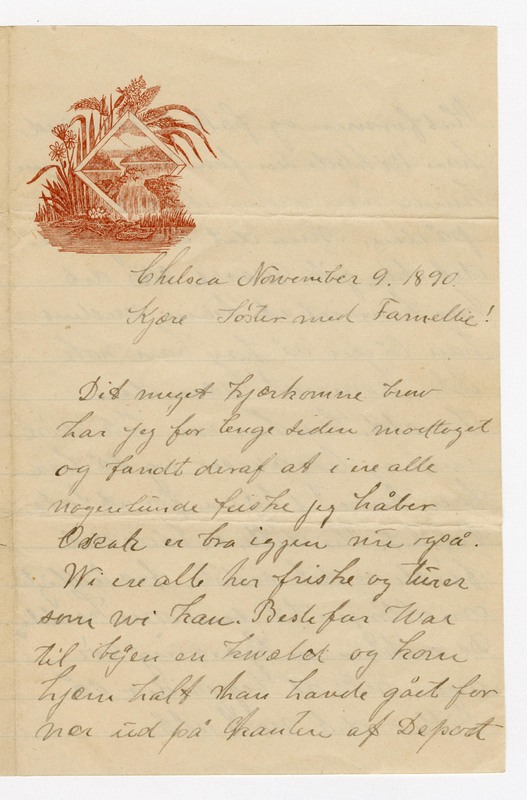 Chelsea November 9. 1890.
Kjære Søster med Famellie!
Dit meget kjærkomne brev
har jeg for lenge siden modtaget
og fandt deraf at i ere alle
nogenlunde friske jeg håber
Oskar er bra igjen nu også.
Wi ere alle her friske og
som wi kan. Bestefar War
til byen en kwæld og kom
hjem halt han hawde gået for
nær ud på kanten af Depoet